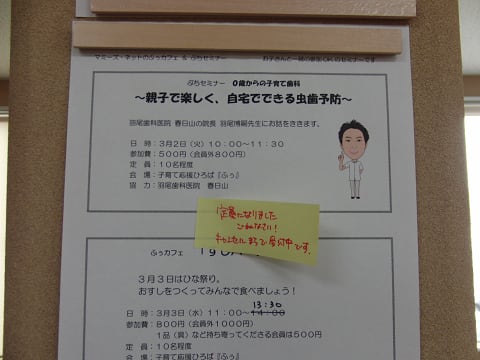 マミーズ・ネットのふぅカフェ & ぷちセミナー
お子さんと一緒の参加OKのセミナーです
ぷちセミナー　0歳からの子育て歯科
～親子で楽しく、自宅でできる虫歯予防～
羽尾歯科医院 春日山の院長 羽尾博嗣先生にお話をききます。
日 時：3月2日（火）10：00～11：30
参加費：500円（会員外800円）
定 員：10名程度
会 場：子育て応援ひろば『ふぅ』
協 力：羽尾歯科医院 春日山
定員になりました
ごめんなさい！
キャンセル待ちで受付中です。
ふぅカフェ
3月3日はひな祭り。
おすしをつくってみんなで食べましょう！
13:30
日 時：3月3日（水）11：00～14：00
参加費：800円（会員外1000円）
1品（呉）など持ち寄ってくださる会員は500円
定 員：10名程度
会 場：子育て応援ひろば『ふぅ』